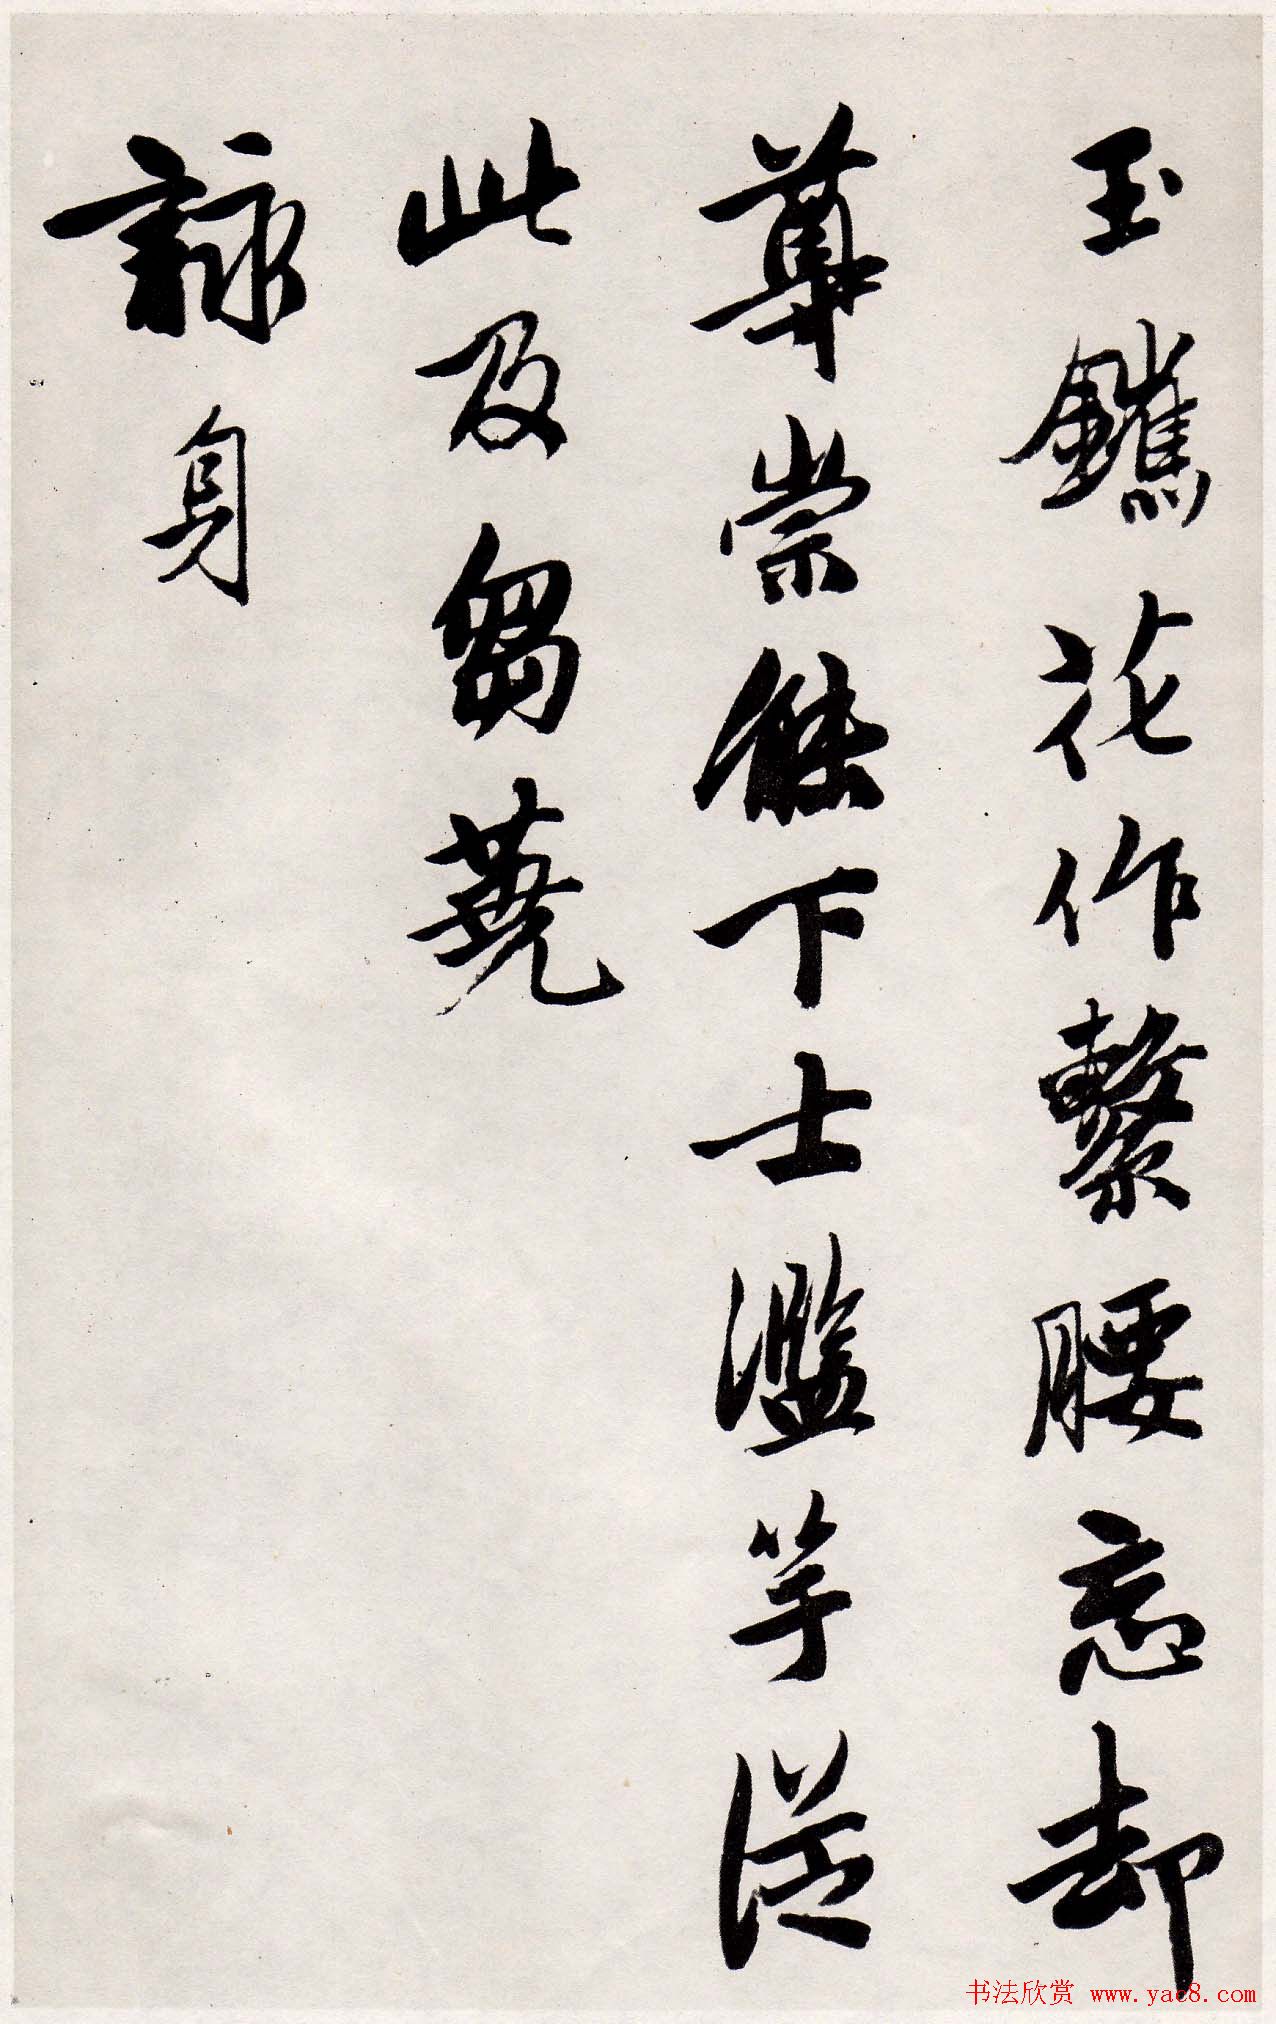 玉鑣花作繫腰忘却
尊崇餘下士濫竽從
此及芻蕘
詠身
书法欣赏 www.yac8.com